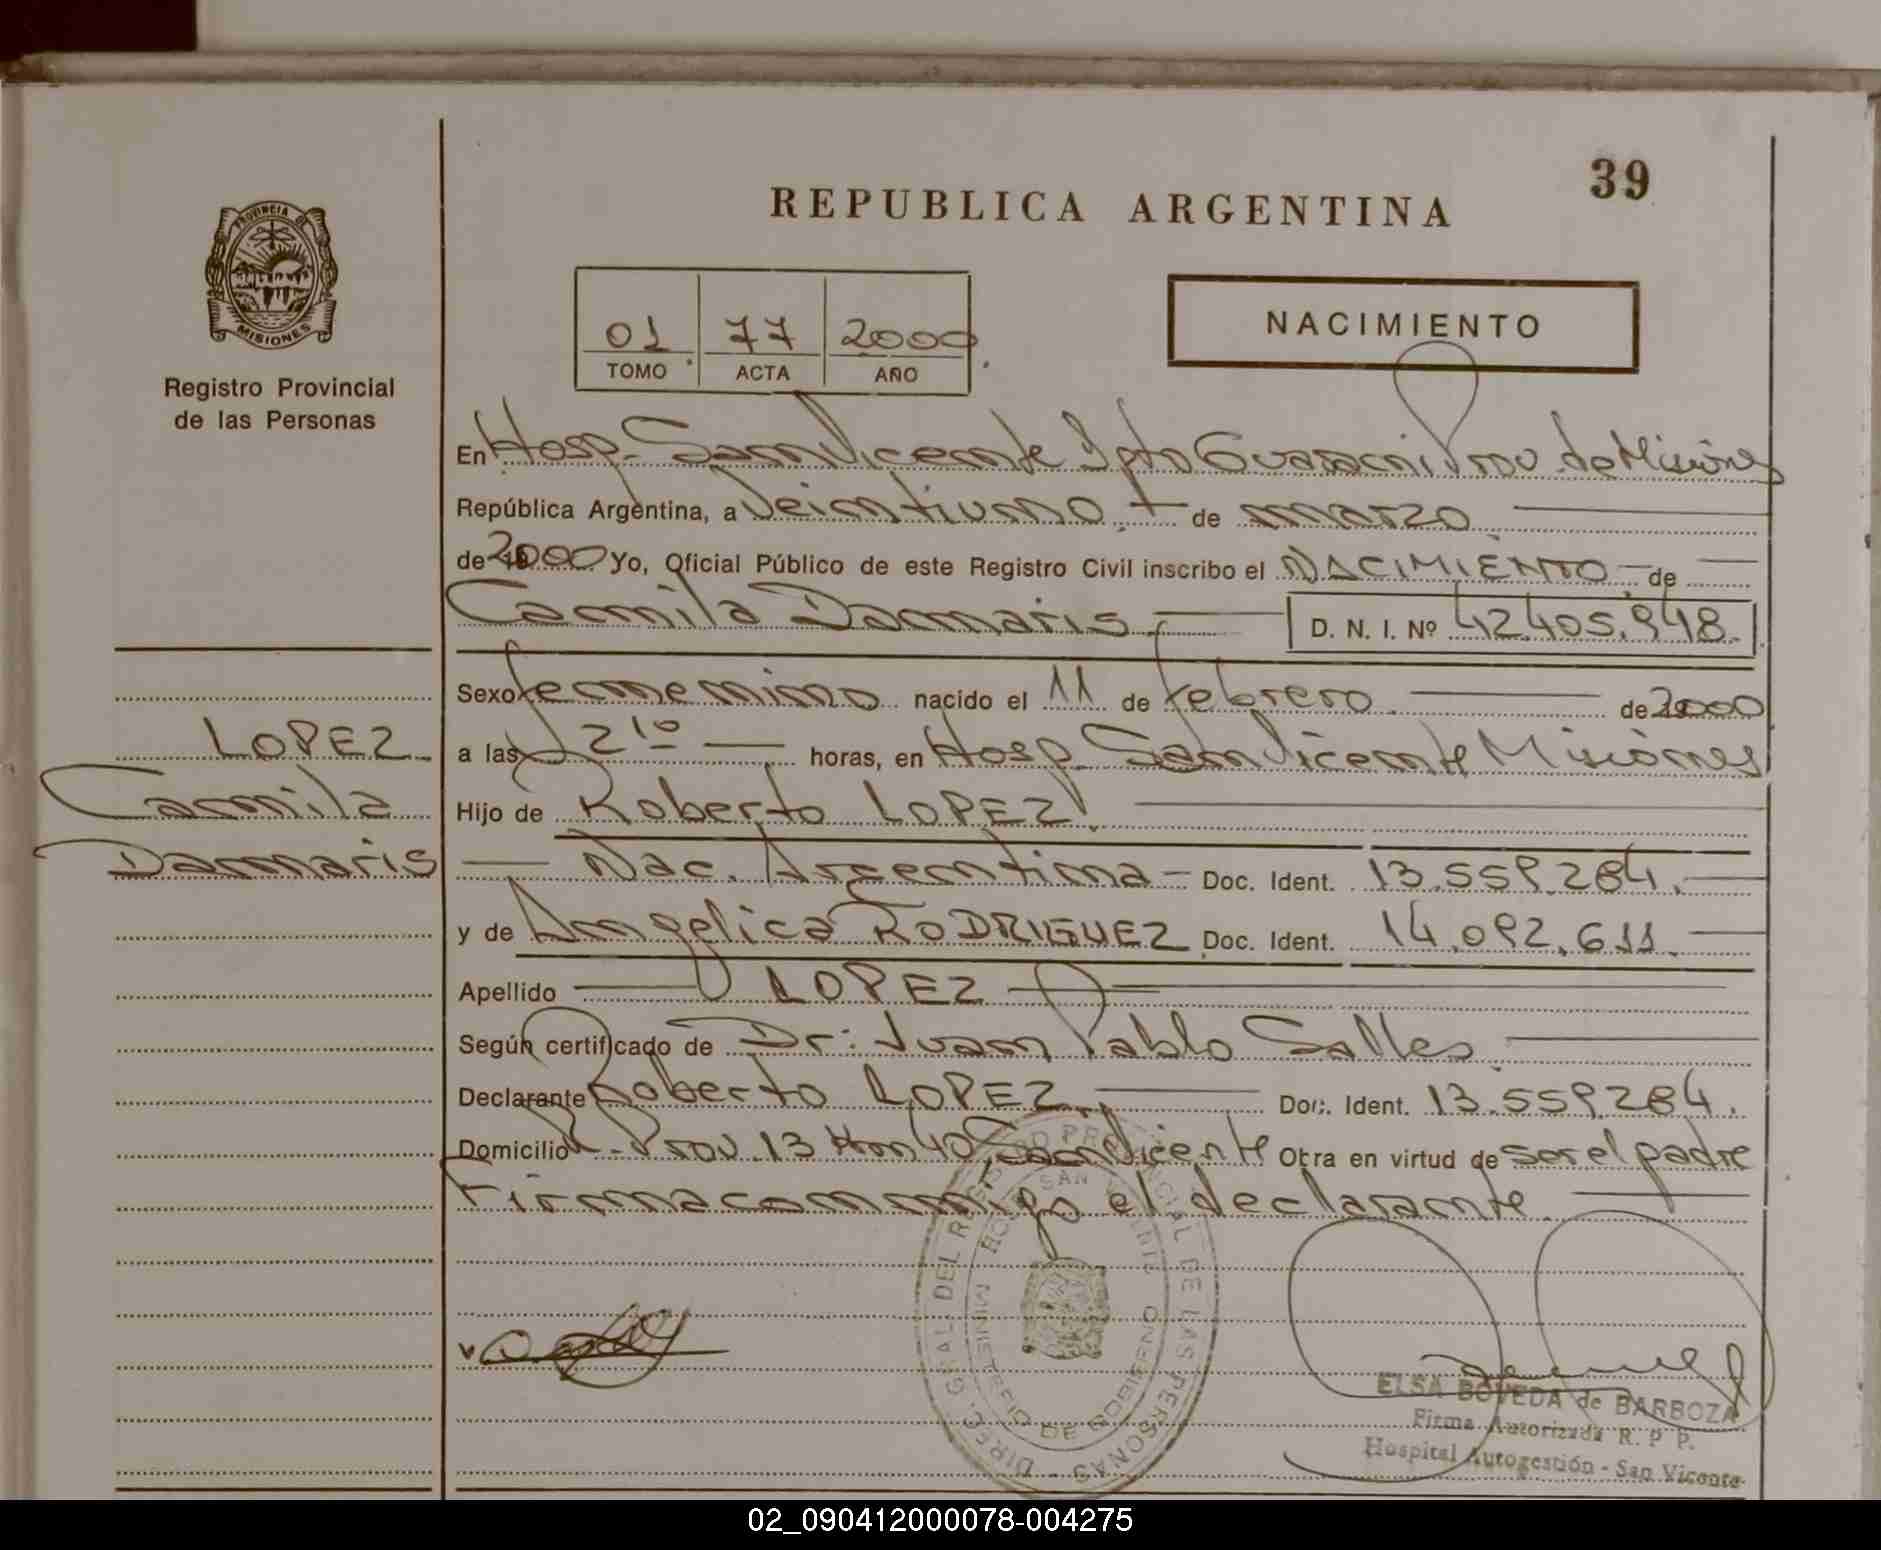 39
REPUBLICA ARGENTINA
PROVINCIA DE
MISIONES
Registro Provincial
de las Personas
01 77 2000
TOMO ACTA AÑO
NACIMIENTO
En Hosp. San Vicente Dpto Guarani Prov. de Misiones
República Argentina, a Veintiuno de marzo
de 2000 Yo, Oficial Público de este Registro Civil inscribo el NACIMIENTO de
Camila Damaris D. N. I. Nº 42.405.948.
Sexo femenino nacido el 11 de febrero de 2000
LOPEZ
Camila
Damaris
a las 21º horas, en Hosp. San Vicente Misiones
Hijo de Roberto LOPEZ
Nac. Argentina Doc. Ident. 13.559.284.
y de Angelica RODRIGUEZ Doc. Ident. 14.092.611
Apellido LOPEZ
Según certificado de Dr: Juan Pablo Salles
Declarante Roberto LOPEZ Doc. Ident. 13.559.284.
Domicilio R. Prov. 13 Km 40 San Vicente Otra en virtud de ser el padre
Firma conmigo el declarante.
DIREC. GRAL. DEL REGISTRO PROVINCIAL DE LAS PERSONAS
MINISTERIO DE GOBIERNO
HOSP. SAN VICENTE
ELSA BOVEDA de BARBOZA
Firma Autorizada R. P. P.
Hospital Autogestión - San Vicente
02_090412000078-004275